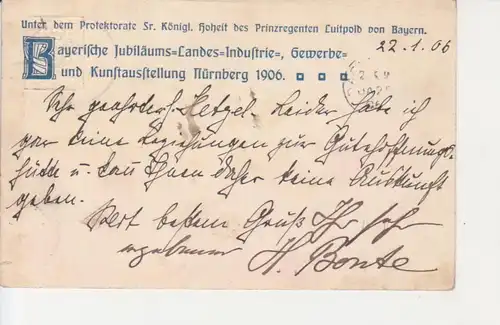 Unter dem Protektorate Sr. Königl. Hoheit des Prinzregenten Luitpold von Bayern.
Bayerische Jubiläums=Landes=Industrie=, Gewerbe=
und Kunstausstellung Nürnberg 1906.
22.1.06
Sehr geehrter H. Hetzel. Leider habe ich
gar keine Beziehungen zur Gutehoffnungs-
hütte u. kau Ihnen daher keine Auskunft
geben.
Mit bestem Gruß Ihr sehr
ergebener H. Bonte